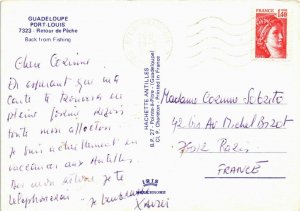 GUADELOUPE
PORT-LOUIS
7323 - Retour de Pêche
Back from Fishing
Chère Corinne
En espérant que ma
carte te trouvera en
pleine forme reçois
toute mon affection.
Je suis actuellement en
vacances aux Antilles.
Dès mon retour je te
téléphonerai. Je t'embrasse
Xavier
HACHETTE ANTILLES
B.P. 27 - Pointe-à-Pitre (Guadeloupe)
Printed in France
IRIS
1,40
FRANCE
Madame Corinne
42 bis Av Michel Bizot
75012 Paris
FRANCE